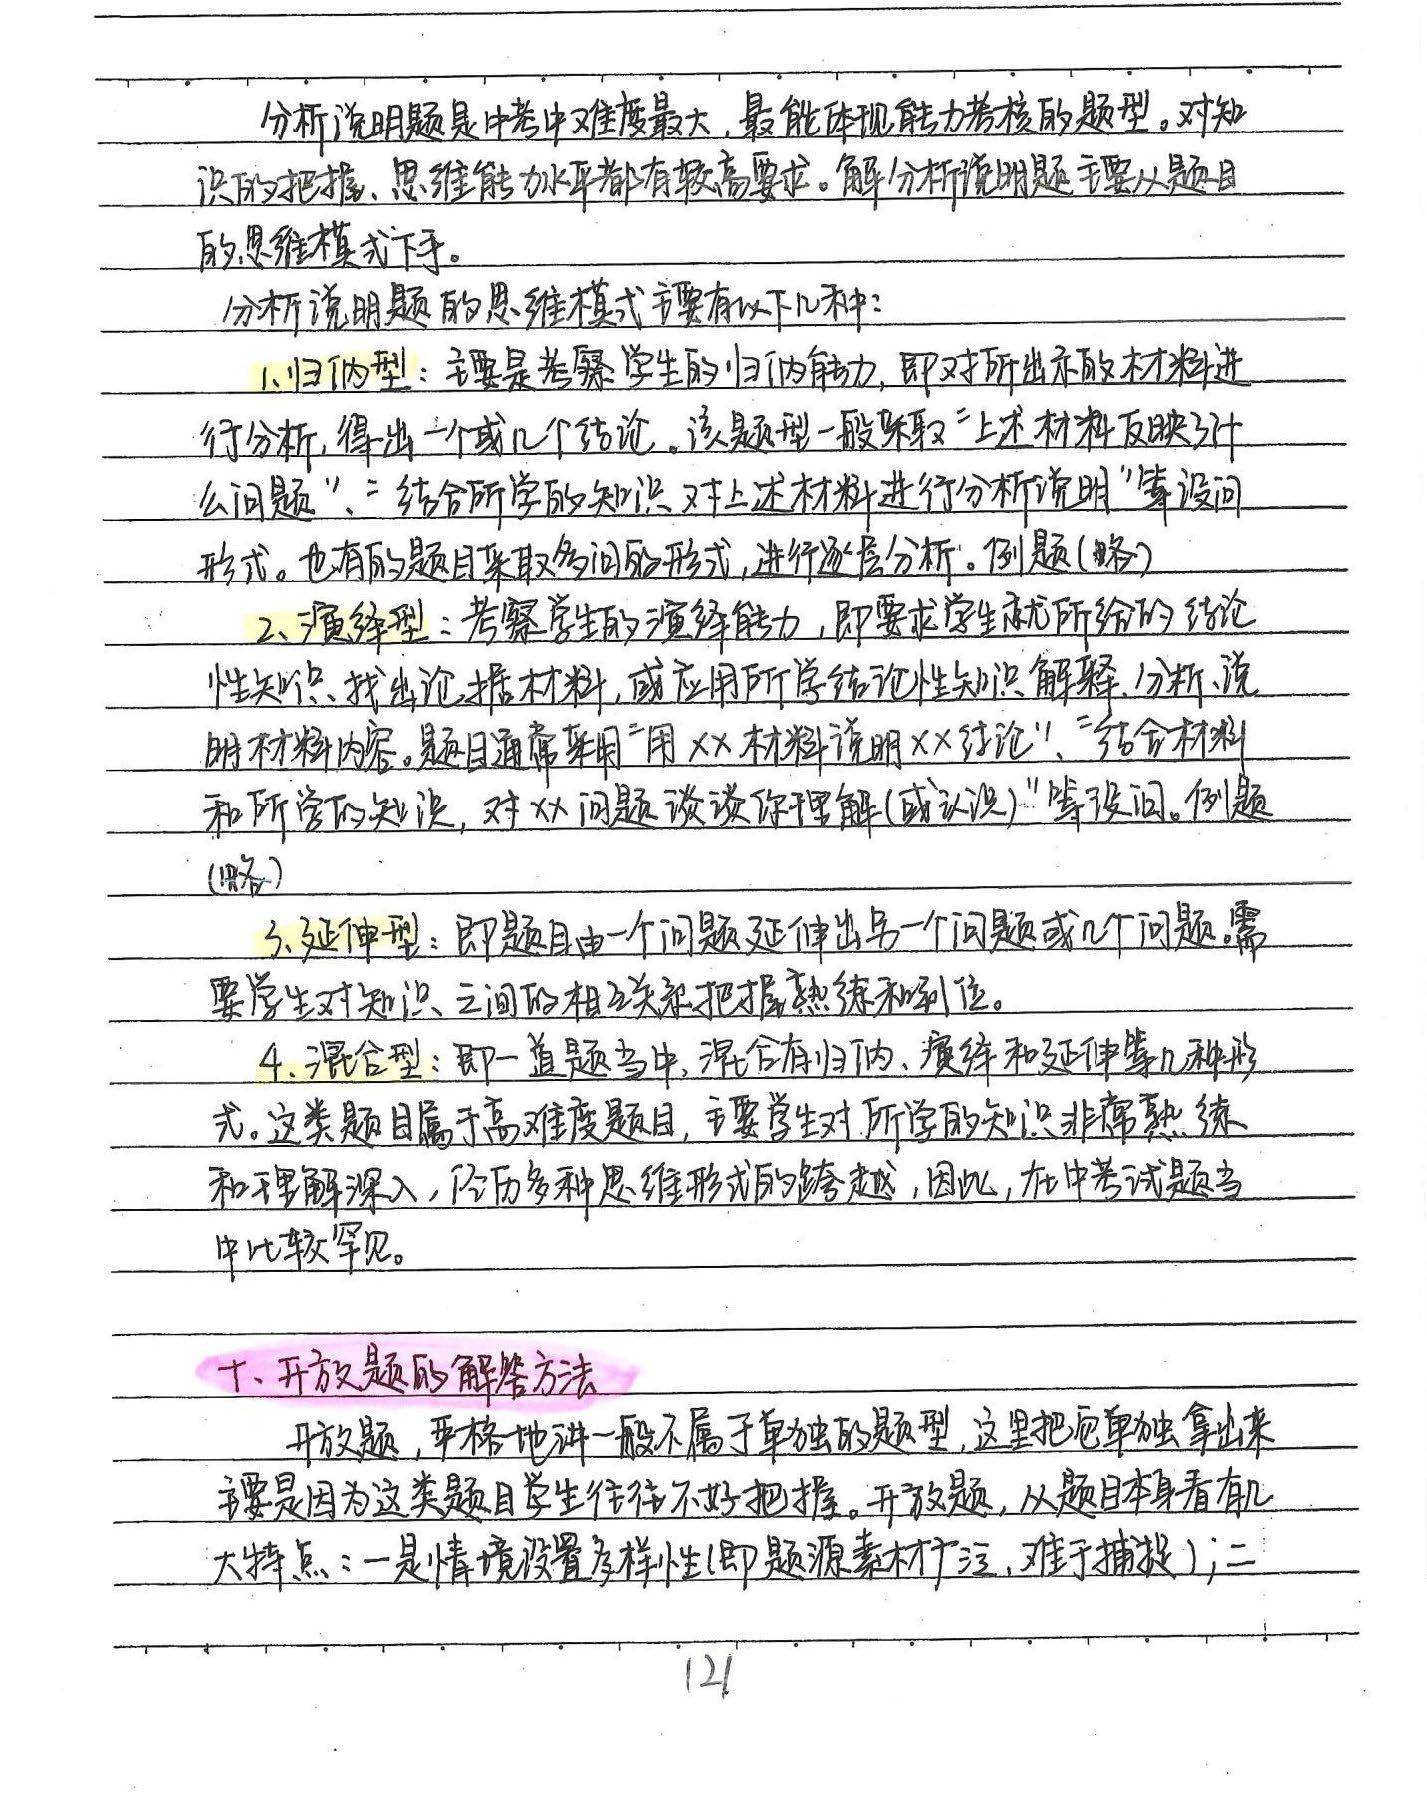 分析说明题是中考中难度最大、最能体现能力考核的题型。对知
识的把握、思维能力水平都有较高要求。解分析说明题主要从题目
的思维模式下手。
分析说明题的思维模式主要有以下几种:
1、归纳型:主要是考察学生的归纳能力,即对所出示的材料进
行分析,得出一个或几个结论。该题型一般采取“上述材料反映了什
么问题”、“结合所学的知识对上述材料进行分析说明”等设问
形式。也有的题目采取多问的形式,进行逐层分析。例题(略)
2、演绎型:考察学生的演绎能力,即要求学生就所给的结论
性知识、找出论据材料,或应用所学结论性知识解释、分析、说
明材料内容。题目通常采用“用××材料说明××结论”、“结合材料
和所学的知识,对××问题谈谈你理解(或认识)”等设问。例题
(略)
3、延伸型:即题目由一个问题延伸出另一个问题或几个问题。需
要学生对知识之间的相互关系把握熟练和到位。
4、混合型:即一道题当中,混合有归纳、演绎和延伸等几种形
式。这类题目属于高难度题目,主要学生对所学的知识非常熟练
和理解深入,经历多种思维形式的跨越,因此,在中考试题当
中比较罕见。
十、开放题的解答方法
开放题,严格地讲一般不属于单独的题型,这里把它单独拿出来
主要是因为这类题目学生往往不好把握。开放题,从题目本身看有几
大特点:一是情境设置多样性(即题源素材广泛,难于捕捉);二
121